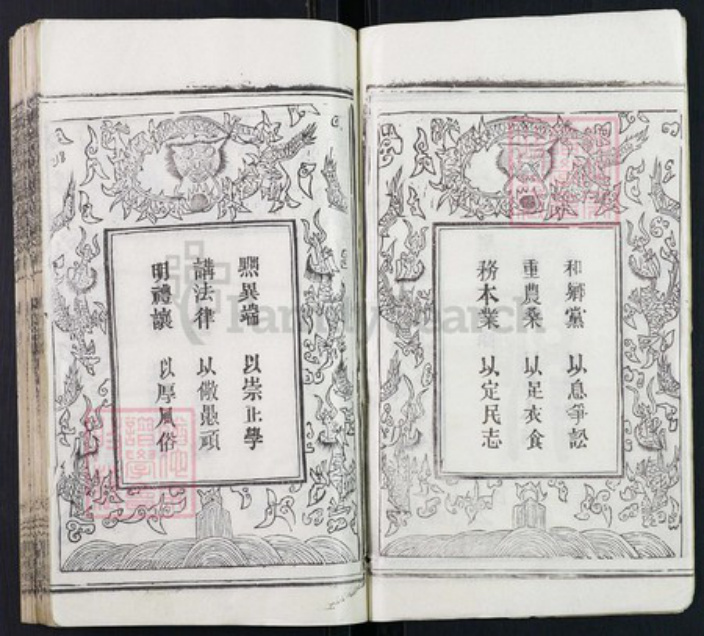 和鄉黨 以息爭訟
重農桑 以足衣食
務本業 以定民志
黜異端 以崇正學
講法律 以儆愚頑
明禮讓 以厚風俗
FamilySearch